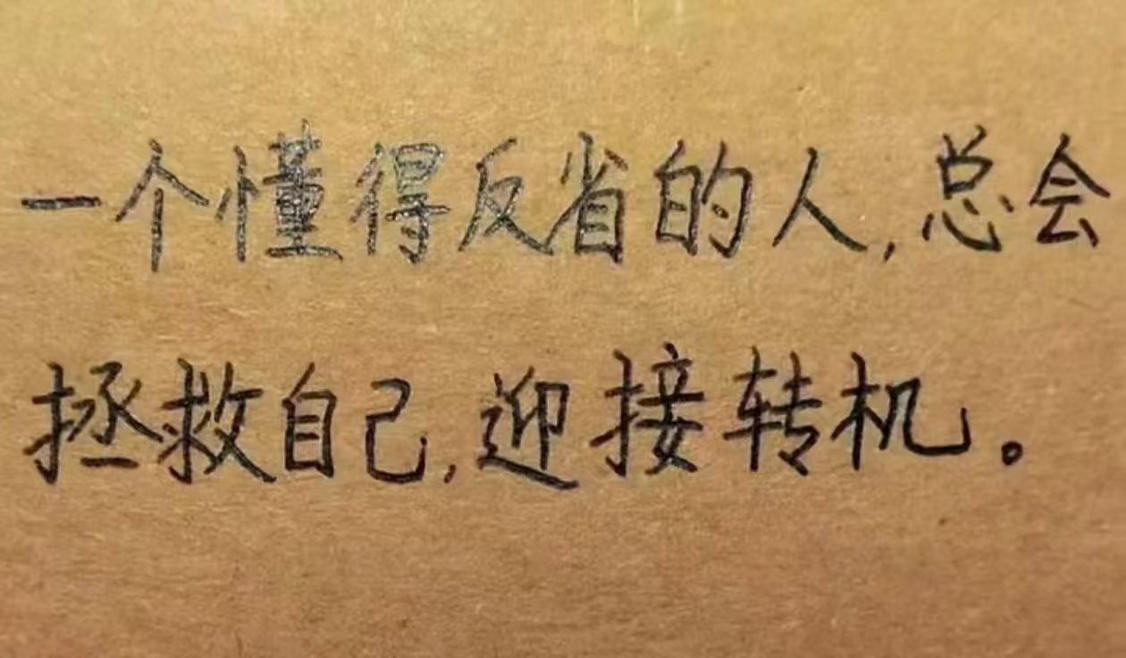 一个懂得反省的人,总会
拯救自己,迎接转机。